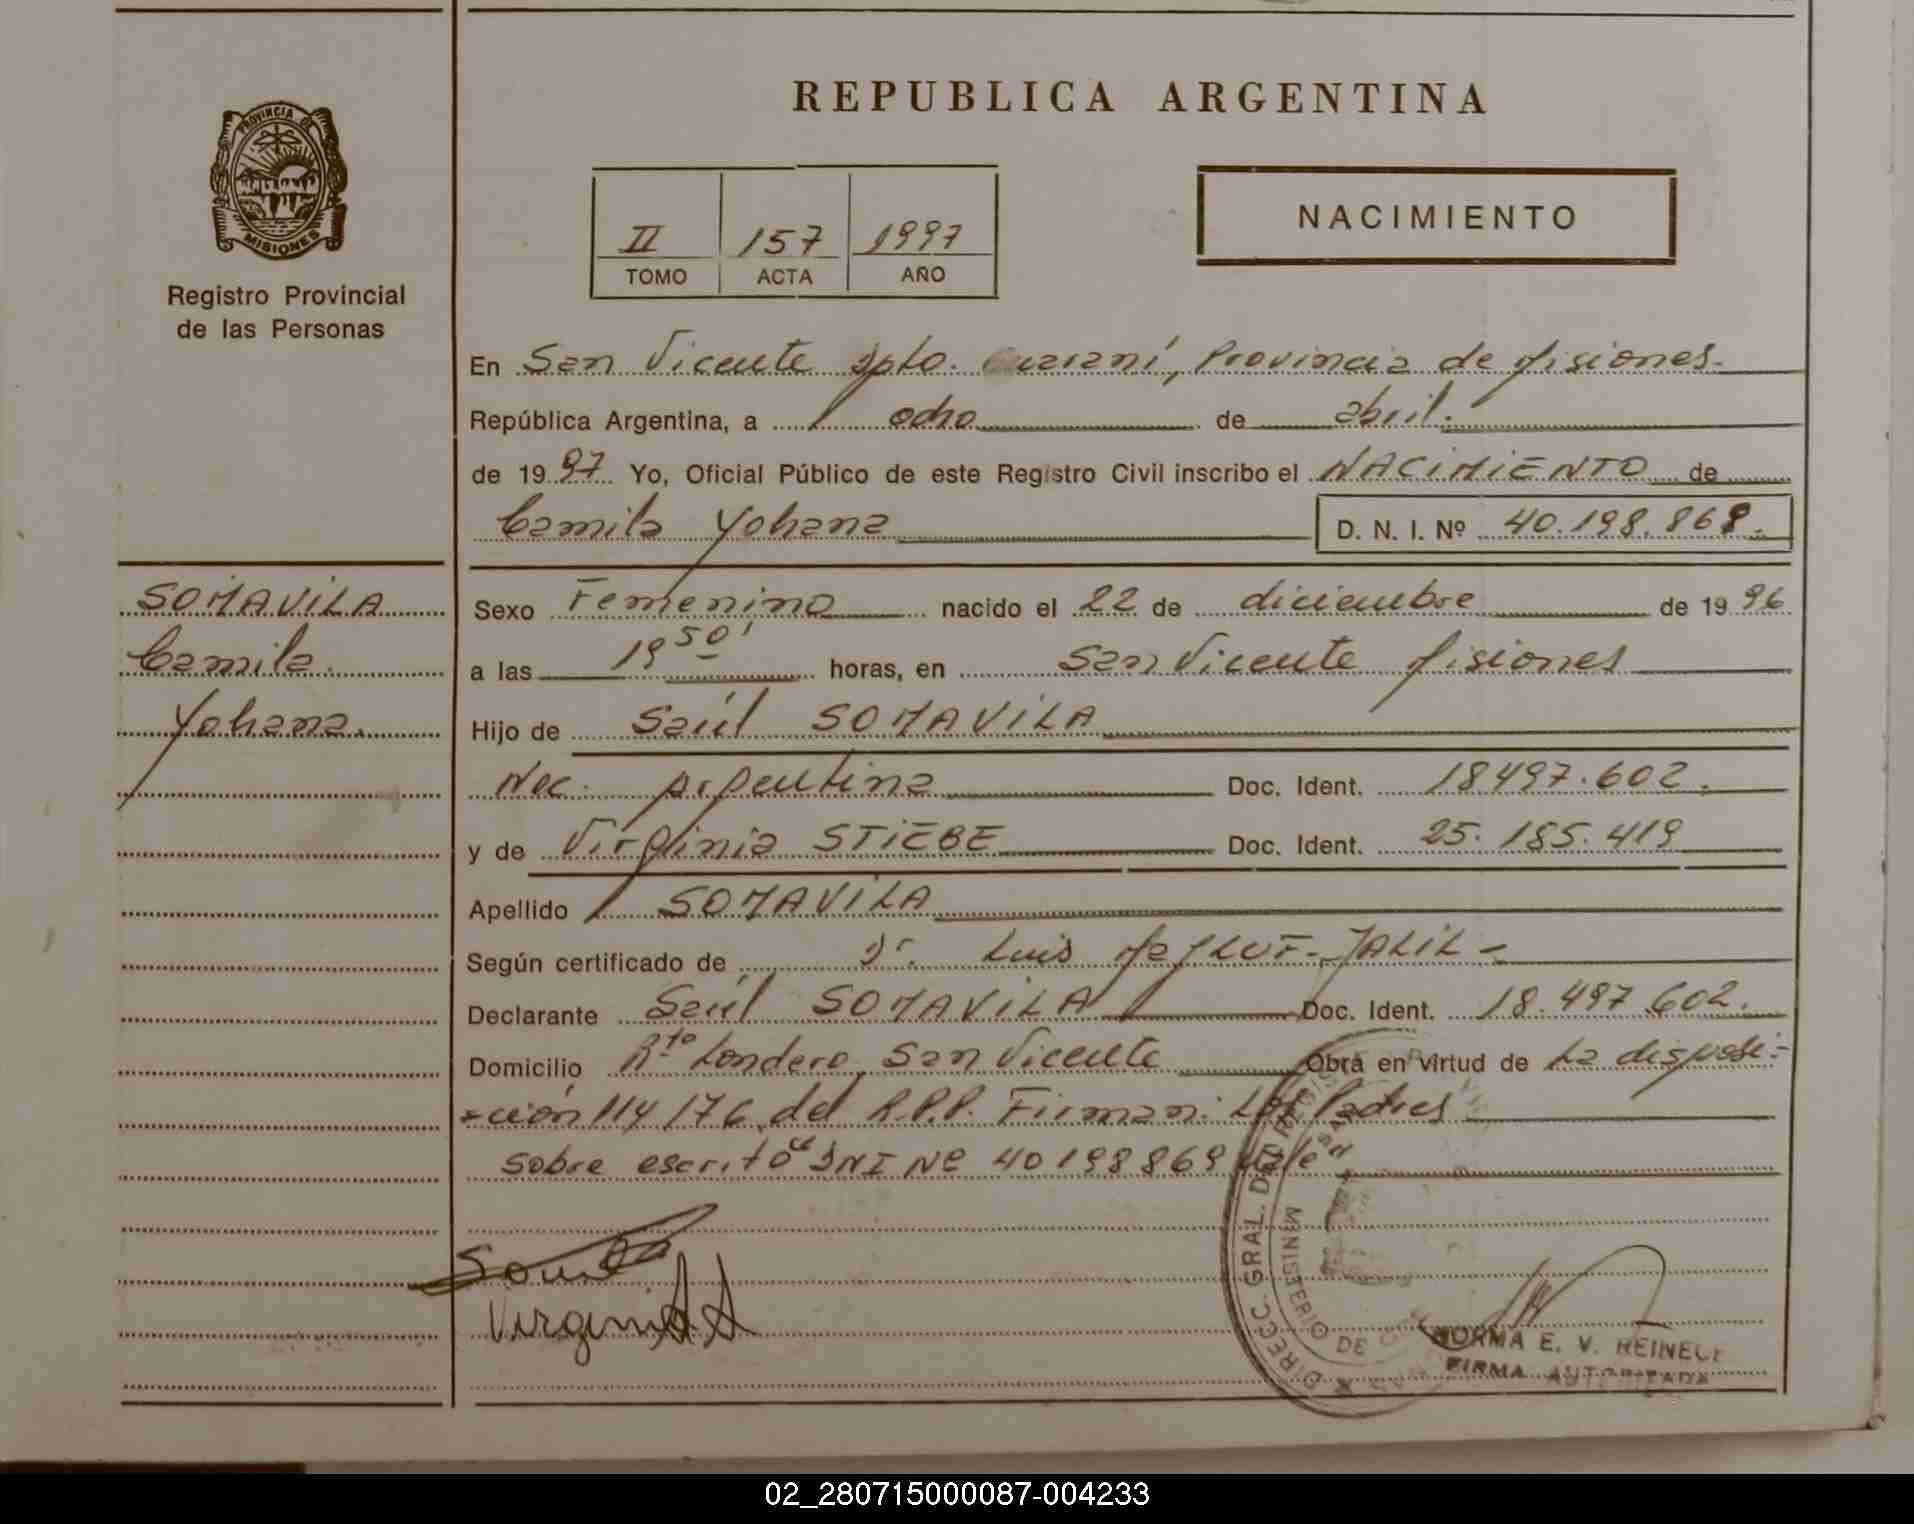 REPUBLICA ARGENTINA
PROVINCIA DE
MISIONES
Registro Provincial
de las Personas
II 157 1997
TOMO ACTA AÑO
NACIMIENTO
En San Vicente Dpto. Guaraní, Provincia de Misiones.
República Argentina, a ocho de abril.
de 1997 Yo, Oficial Público de este Registro Civil inscribo el NACIMIENTO de
Camila Yohana D. N. I. Nº 40.198.869.
SOMAVILA
Camila
Yohana.
Sexo Femenino nacido el 22 de diciembre de 1996
a las 19 50' horas, en San Vicente Misiones
Hijo de Saúl SOMAVILA
Nac. Argentina Doc. Ident. 18497.602.
y de Virginia STIEBE Doc. Ident. 25.185.419
Apellido SOMAVILA
Según certificado de Dr. Luis JALIL
Declarante Saúl SOMAVILA Doc. Ident. 18.497.602.
Domicilio Rto Londero San Vicente Obra en virtud de La disposi-
-ción 114/76 del R.P.P. Firman: Los Padres
sobre escrito "DNI Nº 40198869 Vale"
Virginia
DIRECC. GRAL. DEL REGIS
MINISTERIO DE
NORMA E. V. REINECK
FIRMA AUTORIZADA
02_280715000087-004233